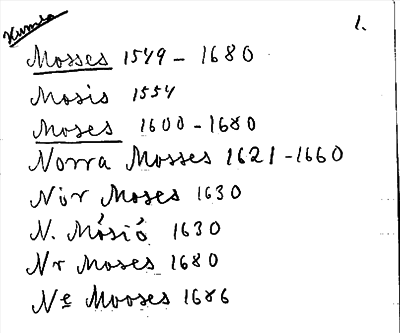 Kumla
1.
Mosses 1549 - 1680
Mosis 1554
Moses 1600 - 1680
Norra Mosses 1621 - 1660
Nör Moses 1630
N. Mósió 1630
Nr Moses 1680
Ne Mooses 1686